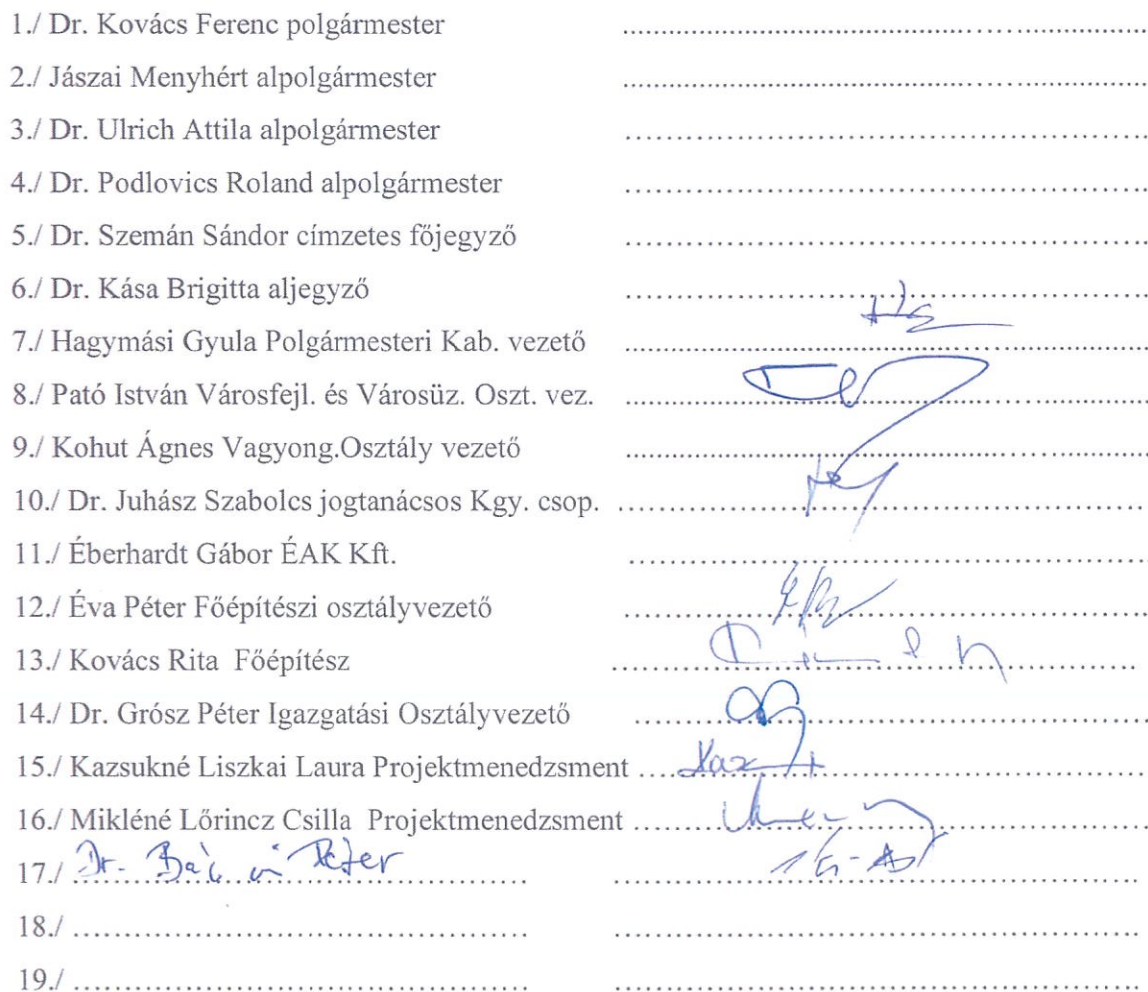 1./ Dr. Kovács Ferenc polgármester ........................................................................
2./ Jászai Menyhért alpolgármester ........................................................................
3./ Dr. Ulrich Attila alpolgármester ........................................................................
4./ Dr. Podlovics Roland alpolgármester ........................................................................
5./ Dr. Szemán Sándor címzetes főjegyző ........................................................................
6./ Dr. Kása Brigitta aljegyző ........................................................................
7./ Hagymási Gyula Polgármesteri Kab. vezető ........................................................................
8./ Pató István Városfejl. és Városüz. Oszt. vez. ........................................................................
9./ Kohut Ágnes Vagyong.Osztály vezető ........................................................................
10./ Dr. Juhász Szabolcs jogtanácsos Kgy. csop. ........................................................................
11./ Éberhardt Gábor ÉAK Kft. ........................................................................
12./ Éva Péter Főépítészi osztályvezető ........................................................................
13./ Kovács Rita Főépítész ........................................................................
14./ Dr. Grósz Péter Igazgatási Osztályvezető ........................................................................
15./ Kazsukné Liszkai Laura Projektmenedzsment ........................................................................
16./ Mikléné Lőrincz Csilla Projektmenedzsment ........................................................................
17./ Dr. Péter ........................................................................
18./ ............................................. ........................................................................
19./ ............................................. ........................................................................